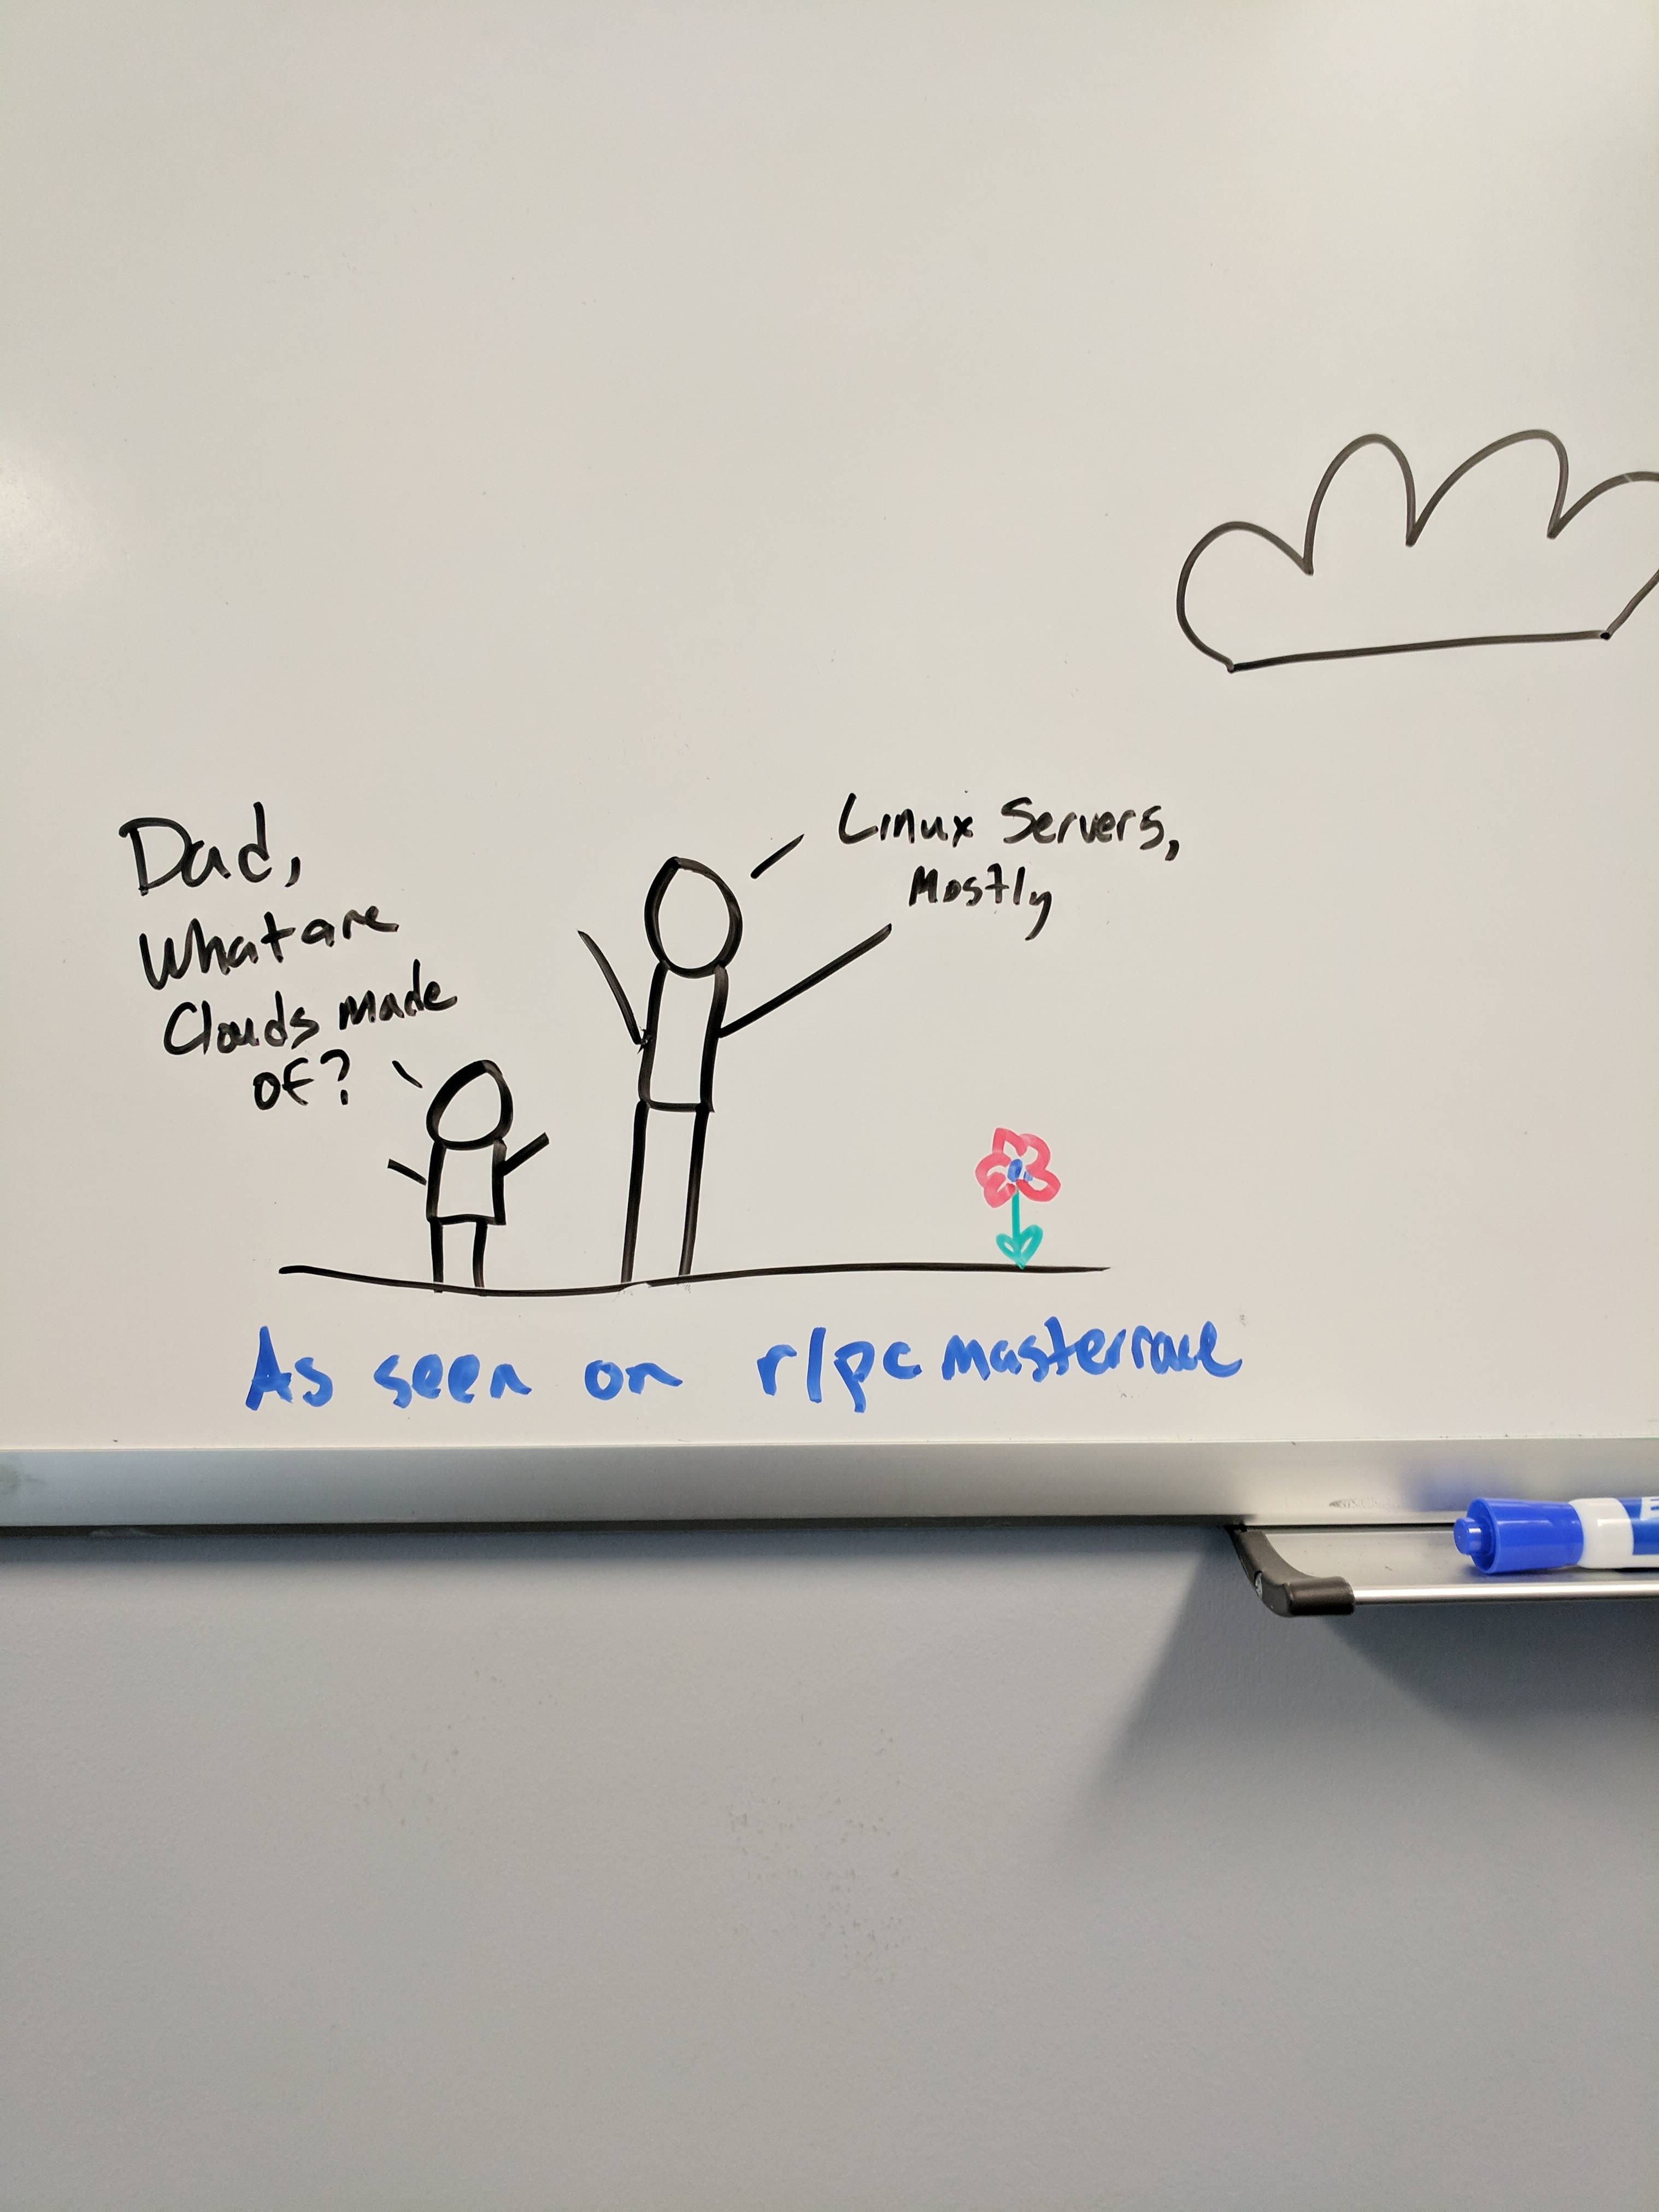 Dad,
What are
Clouds made
of?
Linux Servers,
Mostly
As seen on r/pcmasterrace